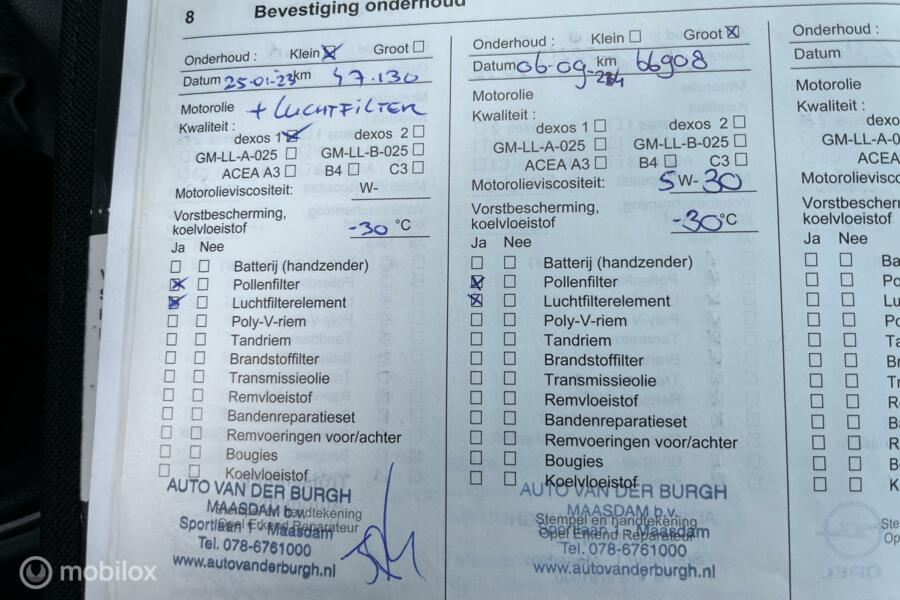 8 Bevestiging onderhoud
Onderhoud : Klein Groot
Datum 25-01-23 km 47.130
Motorolie + LUCHTFILTER
Kwaliteit :
dexos 1 dexos 2
GM-LL-A-025 GM-LL-B-025
ACEA A3 B4 C3
Motorolieviscositeit: W-
Vorstbescherming,
koelvloeistof -30 °C
Ja Nee
Batterij (handzender)
Pollenfilter
Luchtfilterelement
Poly-V-riem
Tandriem
Brandstoffilter
Transmissieolie
Remvloeistof
Bandenreparatieset
Remvoeringen voor/achter
Bougies
Koelvloeistof
AUTO VAN DER BURGH
MAASDAM b.v.
Stempel en handtekening
Opel Erkend Reparateur
Sportlaan 1 - Maasdam
Tel. 078-6761000
www.autovanderburgh.nl
Onderhoud : Klein Groot
Datum 06-09- km 66908
Motorolie
Kwaliteit :
dexos 1 dexos 2
GM-LL-A-025 GM-LL-B-025
ACEA A3 B4 C3
Motorolieviscositeit: 5 W- 30
Vorstbescherming,
koelvloeistof -30 °C
Ja Nee
Batterij (handzender)
Pollenfilter
Luchtfilterelement
Poly-V-riem
Tandriem
Brandstoffilter
Transmissieolie
Remvloeistof
Bandenreparatieset
Remvoeringen voor/achter
Bougies
Koelvloeistof
AUTO VAN DER BURGH
MAASDAM b.v.
Stempel en handtekening
Opel Erkend Reparateur
Sportlaan 1 - Maasdam
Tel. 078-6761000
www.autovanderburgh.nl
Onderhoud :
Datum
Motorolie
Kwaliteit :
GM-LL-A-0
ACEA
Motorolieviscos
Vorstbescherming
koelvloeistof
Ja Nee
Ba
Po
Lu
Po
Ta
Br
Tr
Re
Ba
Re
Bo
K
Ste
Op
mobilox